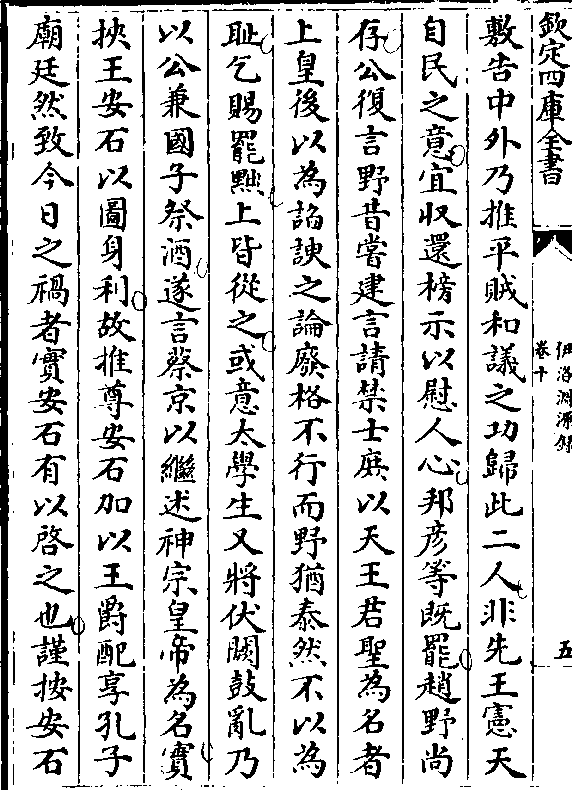 欽定四庫全書
伊洛淵源錄
卷十
五
敷告中外乃推平賊和議之功歸此二人非先王憲天
自民之意宜収還榜示以慰人心邦彦等既罷趙野尚
存公復言野昔嘗建言請禁士庶以天王君聖為名者
上皇後以為諂諛之論廢格不行而野猶泰然不以為
耻乞賜罷黜上皆從之或意太學生又將伏闕鼓亂乃
以公兼國子祭酒遂言蔡京以繼述神宗皇帝為名實
挾王安石以圖身利故推尊安石加以王爵配享孔子
廟廷然致今日之禍者實安石有以啓之也謹按安石